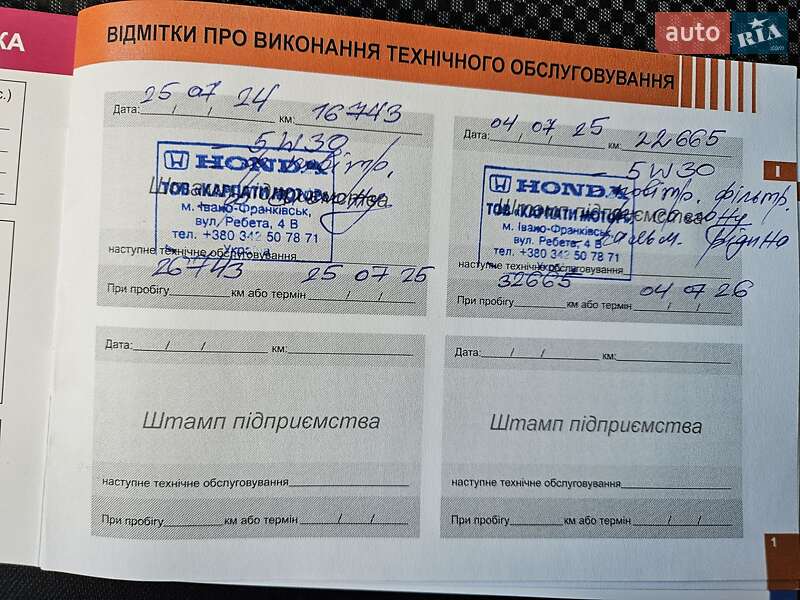 КА
с.)
auto RIA .com
ВІДМІТКИ ПРО ВИКОНАННЯ ТЕХНІЧНОГО ОБСЛУГОВУВАННЯ
Дата: 25 / 07 / 24 км: 16743
5W30
повітр.
HONDA
ТОВ «КАРПАТИ МОТОР»
м. Івано-Франківськ,
вул. Ребета, 4 В
тел. +380 342 50 78 71
Штамп підприємства
наступне технічне обслуговування
При пробігу 26743 км або термін 25 / 07 / 25
Дата: 04 / 07 / 25 км: 22665
5W30
повітр. фільтр.
салону
гальм. рідина
HONDA
ТОВ «КАРПАТИ МОТОР»
м. Івано-Франківськ,
вул. Ребета, 4 В
тел. +380 342 50 78 71
Штамп підприємства
наступне технічне обслуговування
При пробігу 32665 км або термін 04 / 07 / 26
Дата: / / км:
Штамп підприємства
наступне технічне обслуговування
При пробігу км або термін / /
Дата: / / км:
Штамп підприємства
наступне технічне обслуговування
При пробігу км або термін / /
I
1